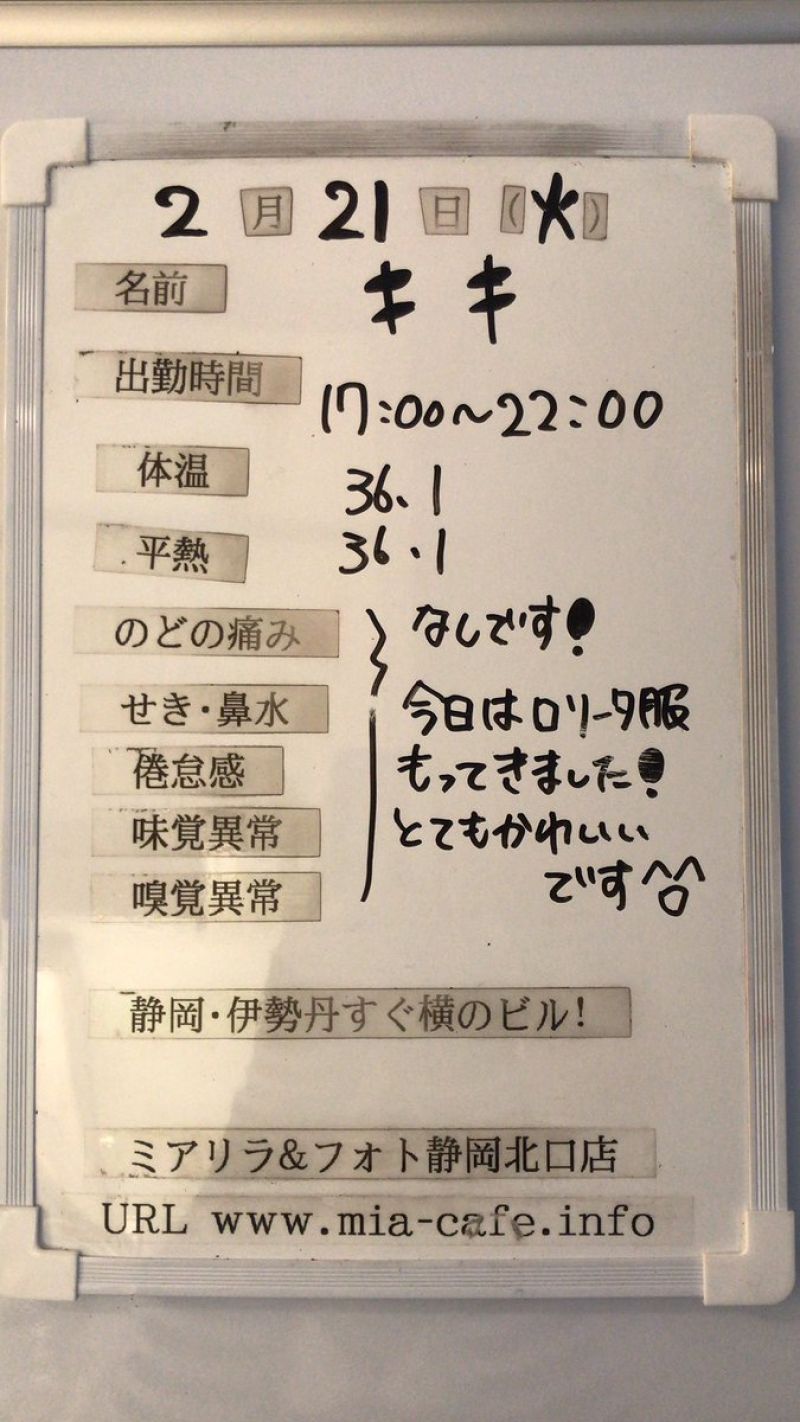 2月21日(火)
名前 キキ
出勤時間 17:00~22:00
体温 36.1
平熱 36.1
のどの痛み なしです!
せき・鼻水 今日はロリータ服
倦怠感 もってきました!
味覚異常 とてもかわいい
嗅覚異常 です^o^
静岡・伊勢丹すぐ横のビル!
ミアリラ&フォト静岡北口店
URL www.mia-cafe.info